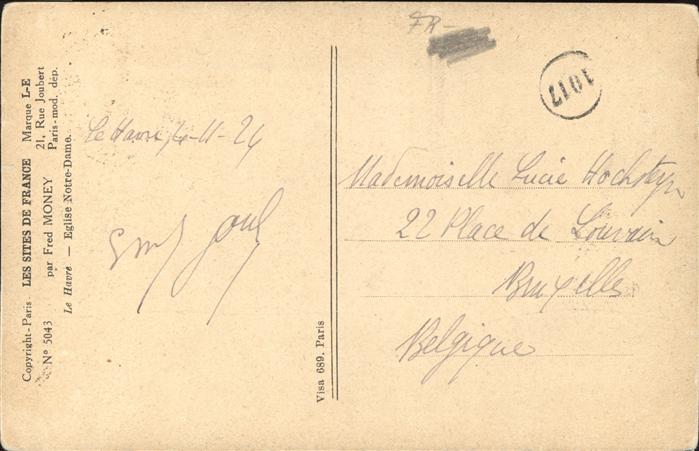 Copyright-Paris. LES SITES DE FRANCE Marque L-E
Nº 5043 par Fred MONEY 21, Rue Joubert
Paris-mod. dép.
Le Havre — Eglise Notre-Dame.
FR-
1017
Le Havre, 4-11-24
Visa 689. Paris
Mademoiselle Lucie Hochsteyn
22 Place de Louvain
Bruxelles
Belgique